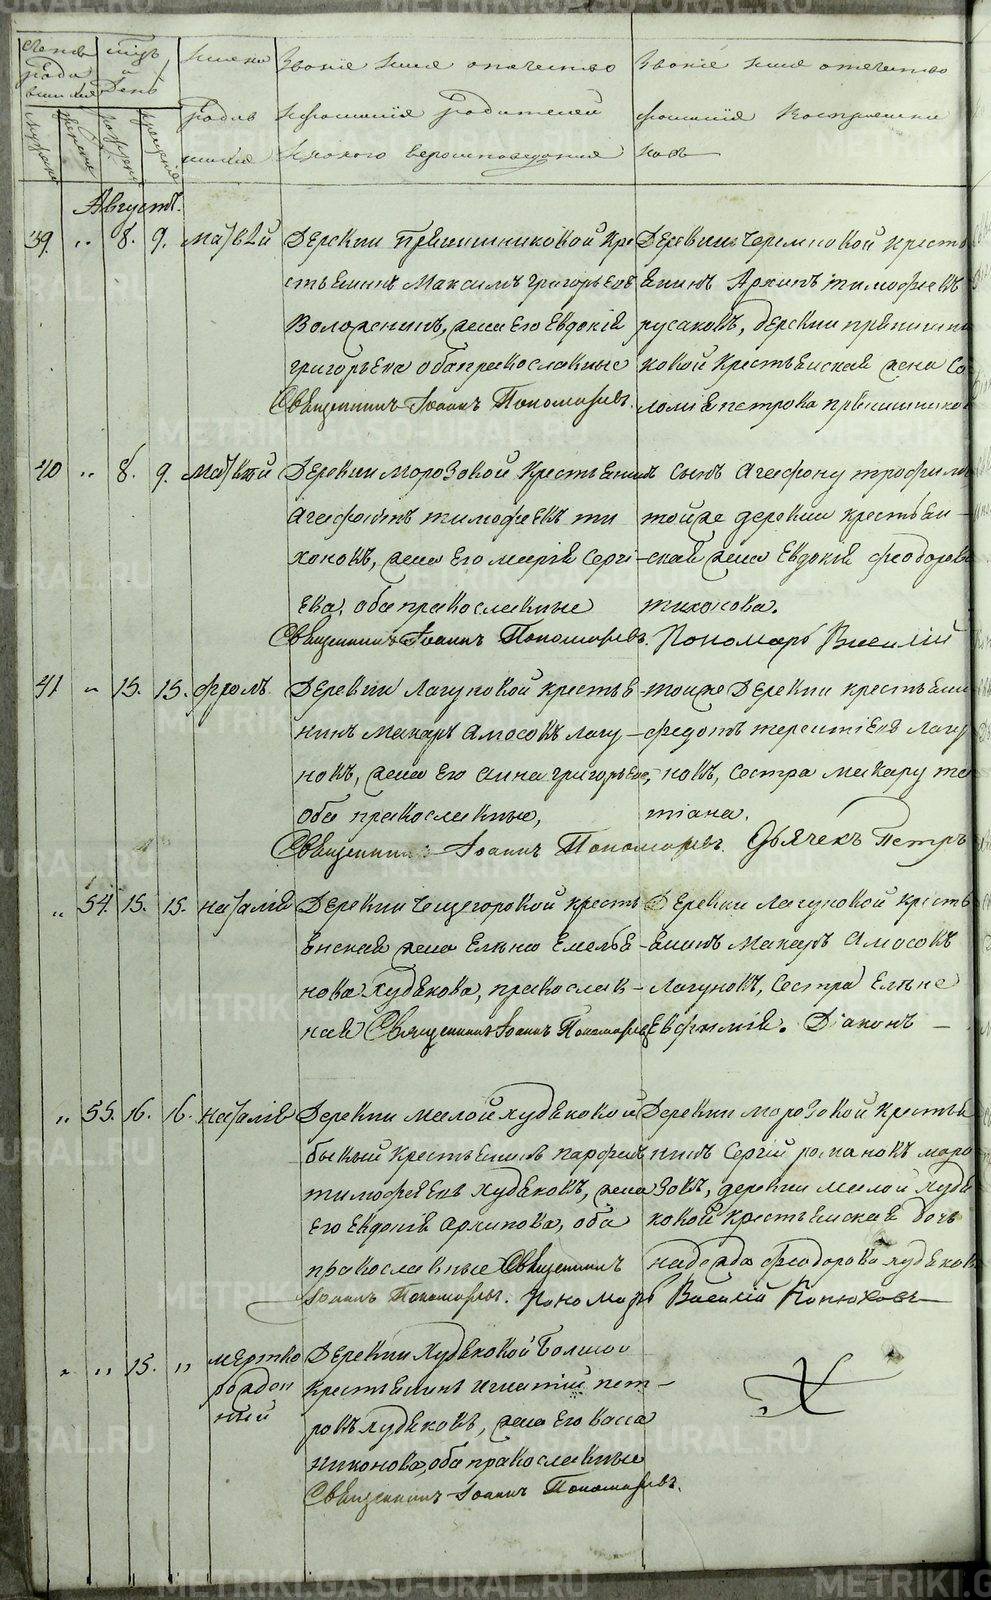 METRIKI.GASO-URAL.RU
Счетъ родившихся
Мѣсяцъ и День
Имена родившихся
Званіе имя отечество
и фамилія родителей
и какого вероисповедания
Званіе имя отечество
фамилія восприемниковъ
Августъ.
39. " 8. 9. Матвѣй
Деревни Пряишниковой Кре
стьянинъ Максимъ Григорьевъ
Воложенинъ, жена его Евдокія
Григорьева оба православные
Священникъ Іоаннъ Пономаревъ.
Деревни Черемновой Кресть
янинъ Архипъ Тимофеевъ
Русаковъ, Деревни
ковой Крестьянская жена Со
ломія Петрова
40 " 8. 9. Матвѣй
Деревни Морозовой Крестьянинъ
Агафонъ Тимофеевъ Ти
хоновъ, жена его Марія Серге
ева, оба православные
Священникъ Іоаннъ Пономаревъ.
Сынъ Агафону Трофимъ
той же деревни крестьян
ская жена Евдокія Феодорова
Тихонова.
Пономарь Василій
41 " 15. 15. Фролъ
Деревни Лагуновой крестья
нинъ Макаръ Амосовъ Лагу
новъ, жена его Анна Григорьева,
оба православные,
Священникъ Іоаннъ Пономаревъ
тоиже Деревни крестьянин
Федотъ Терентіевъ Лагу
новъ, сестра Макару Та
тіана.
Дьячекъ Петръ
" 54. 15. 15. Наталія
Деревни крестья
янская жена Елена Емелья
нова Худякова, православ
ная Священникъ Іоаннъ Пономаревъ
Деревни Лагуновой кресть
янинъ Макаръ Амосовъ
Лагуновъ, сестра Елене
Евфимія. Діаконъ
" 55. 16. 16. Наталія
Деревни малой Худяковой
бывый крестьянинъ Парфенъ
Тимофеевъ Худяковъ, жена
его Евдокія Архипова, оба
православные Священникъ
Іоаннъ Пономаревъ. Пономарь Василій Попюховъ
Деревни Морозовой крестья
нинъ Сергій Романовъ Моро
зовъ, деревни малой Худя
ковой крестьянская дочь
Надежда Феодорова Худяков
" " 15. " мертво
рожден
ный
Деревни Худяковой Большой
крестьянинъ Игнатій Пет
ровъ Худяковъ, жена его Васса
Никонова, оба православные
Священникъ Іоаннъ Пономаревъ.
METRIKI.GASO-URAL.RU